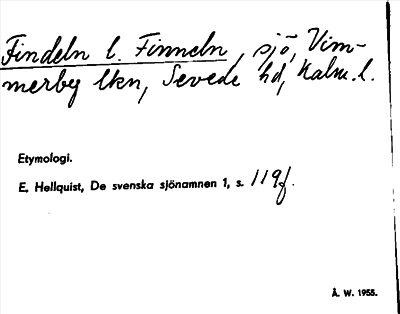 Findeln l. Finneln, sjö, Vim-
merby lkn, Sevede hd, Kalm. l.
Etymologi.
E. Hellquist, De svenska sjönamnen 1, s. 119f.
Å. W. 1955.